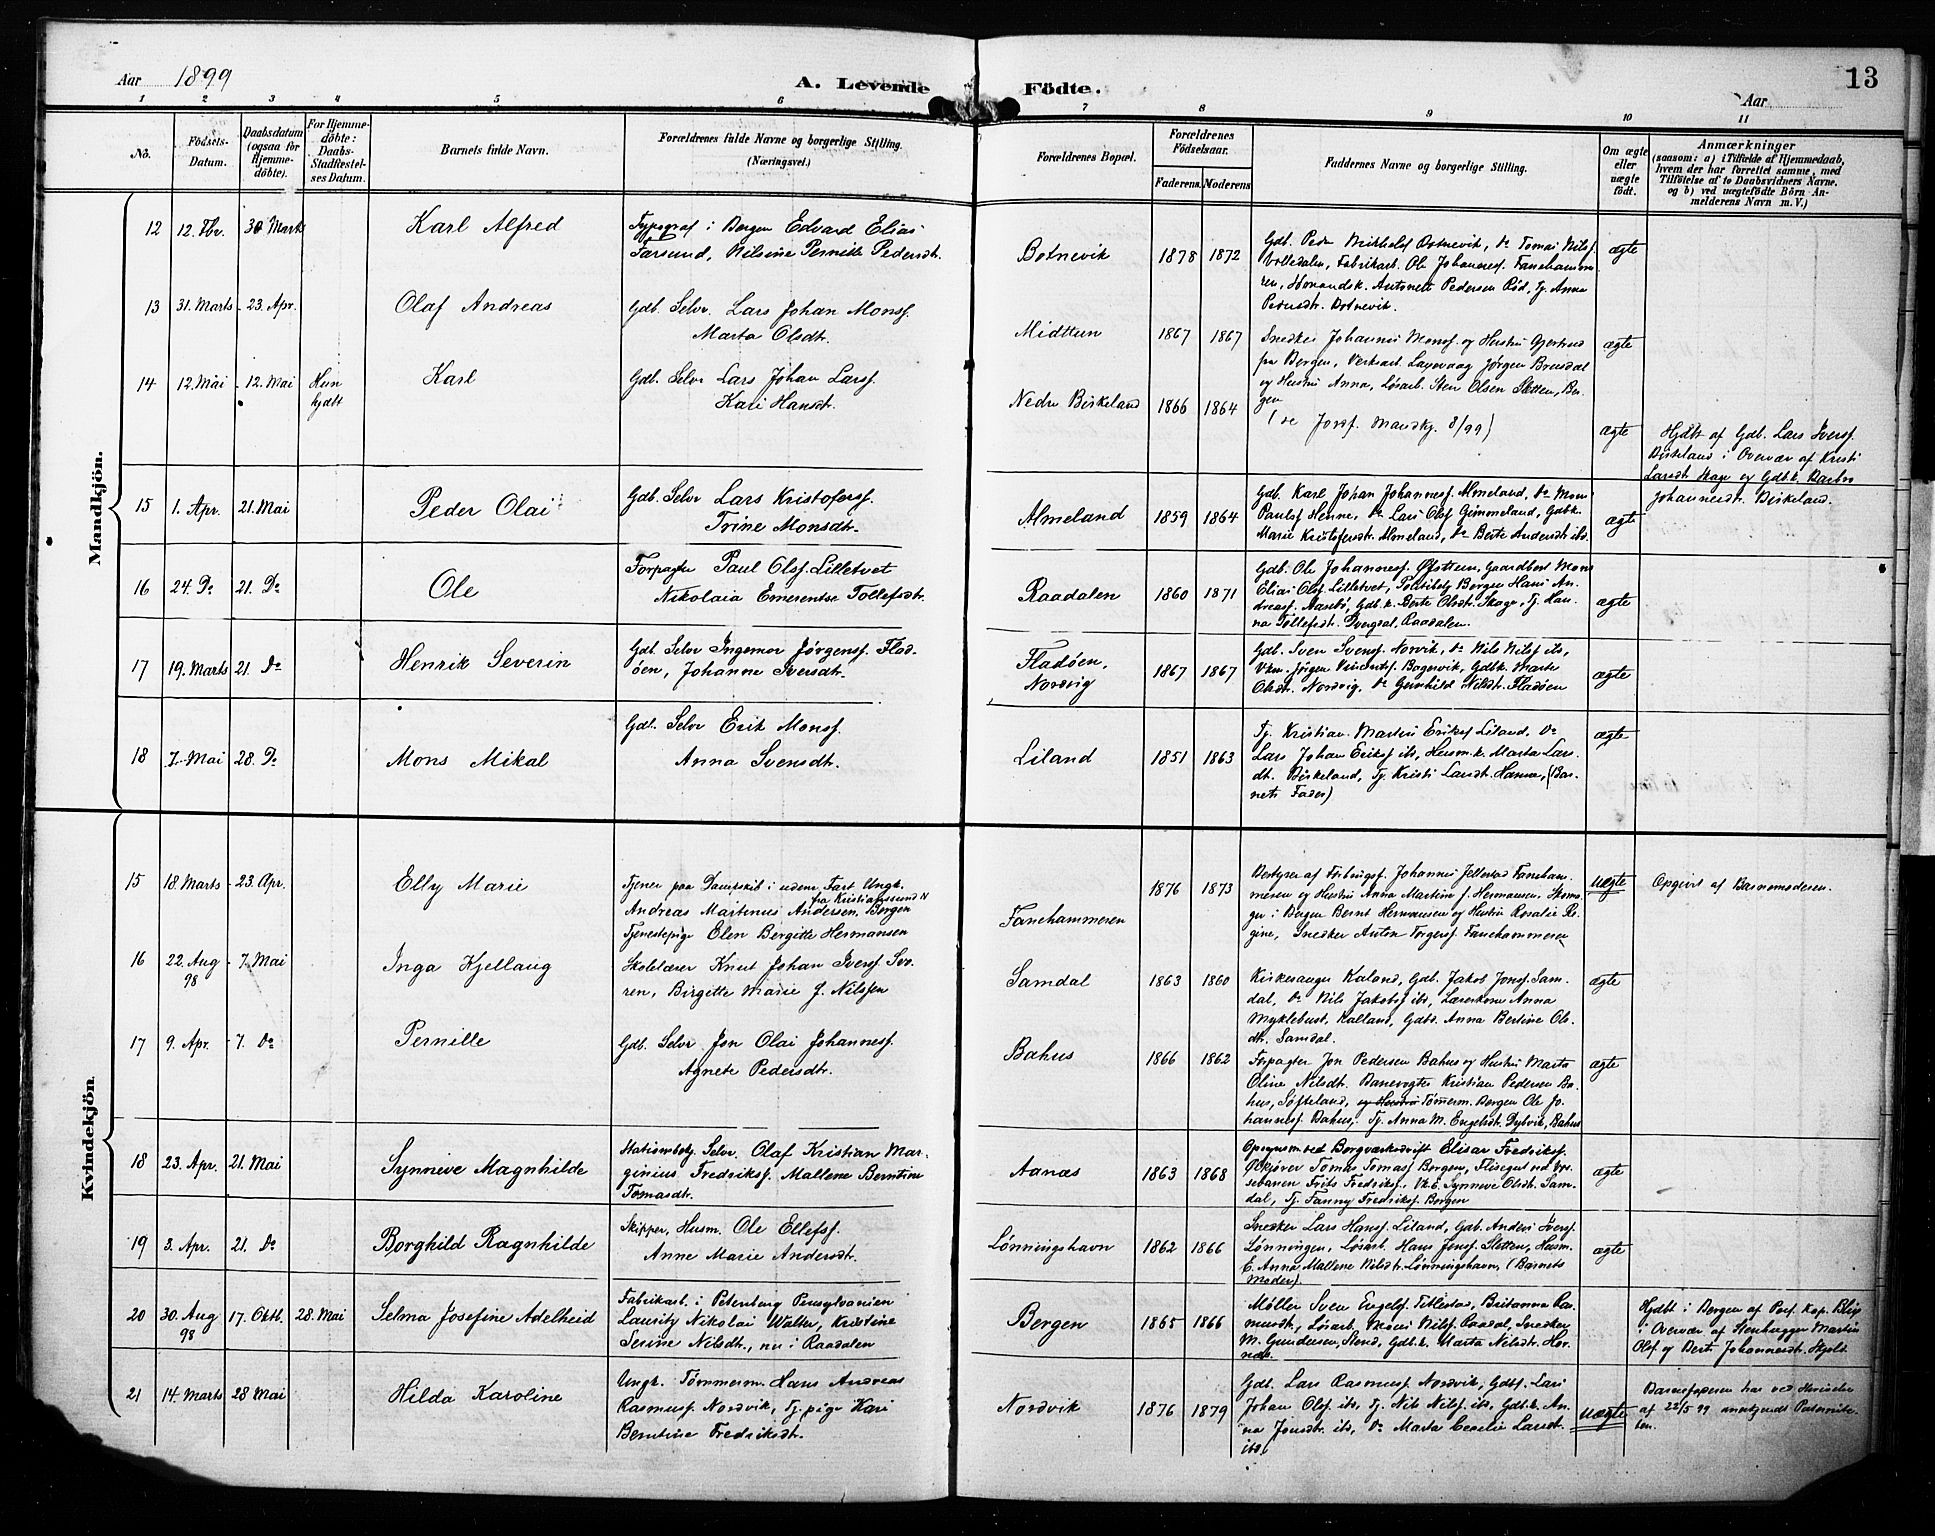 Aar 1899
A. Levende Födte.
Aar
13
1 2 3 4 5 6 7 8 9 10 11
No.
Födsels-Datum.
Daabsdatum (ogsaa for Hjemmedöbte).
For Hjemmedöbte: Daabs-Stadfæstelses Datum.
Barnets fulde Navn.
Forældrenes fulde Navne og borgerlige Stilling.
(Næringsvei.)
Forældrenes Bopæl.
Forældrenes Födselsaar.
Faderens. Moderens
Faddernes Navne og borgerlige Stilling.
Om ægte eller uægte födt.
Anmærkninger
(saasom: a) i Tilfælde af Hjemmedaab,
hvem der har forrettet samme, med
Tilföielse af to Daabsvidners Navne,
og b) ved uægtefödte Börn An-
melderens Navn m. V.)
Mandkjön.
12 12. Fbr. 30 Marts Karl Alfred
Typograf i Bergen Edvard Elias
Farsund, Nilsine Pernille Pedersdt.
Botnevik 1878 1872
Gdb. Peder Mikkelsf Botnevik, Do Tomas Nilsf.
Fabrikarb. Ole Johannesf. Fanehamme
ren, Sömandsk. Antonett Pedersen Rød, Tj. Anna
Pedersdt. Botnevik.
ægte
13 31. Marts 23. Apr. Olaf Andreas
Gdb. Selv. Lars Johan Monsf.
Marta Olsdt.
Midttun 1867 1867
Snedker Johannes Monsf. og Hustru Gjertrud
fra Bergen, Verksarb. Laxevaag Jørgen Brensdal
og Hustru Anna, Løsarb. Sten Olsen Sletten, Ber-
gen
ægte
14 12. Mai 12. Mai Hun hjdbt Karl
Gdb. Selv Lars Johan Larsf.
Kari Hansdt.
Nedre Birkeland 1866 1864
(se Jordf. Mandkj. 8/99)
ægte
Hjdbt af Gdb. Lars Iversf.
Birkeland i Overvær af Kristi
Larsdt. Skage og Gdb.k. Barbro
Johannesdt. Birkeland.
15 1. Apr. 21. Mai Peder Olai
Gdb. Selv Lars Kristofersf.
Trine Monsdt.
Almeland 1859 1864
Gdb. Karl Johan Johannesf. Almeland, Do Mons
Paulsf Henne, Do Lars Olsf Gimmeland, Gdbk.
Marie Kristofersdt. Almeland, Do Berte Andersdt ibd.
ægte
16 24. Do 21. Do Ole
Forpagter Paul Olsf. Lilletvet
Nikolaia Emerentse Tollefsdt.
Raadalen 1860 1871
Gdb. Ole Johannesf. Øfsttun, Gaardbest Mons
Elias Olsf. Lilletvet, Politibetj Bergen Hans An-
dreasf. Aasebø, Gdb.k. Berte Olsdt. Skage, Tj. Han-
na Tollefsdt. Dvergdal, Raadalen.
ægte
17 19. Marts 21. Do Henrik Severin
Gdb. Selv Ingemor Jørgensf. Flad-
øen, Johanne Iversdt.
Fladøen,
Nordvig
1867 1867
Gdb. Sven Svensf. Norvik, Do Nils Nilsf ibd,
Vkm. Jørgen Vincentsf. Bagervik, Gdbk. Marte
Olsdt. Nordvig, Do Gunhild Nilsdt. Fladøen
ægte
18 7. Mai 28. Do Mons Mikal
Gdb. Selv Erik Monsf.
Anna Svensdt.
Liland 1851 1863
Tj. Kristian Martin Eriksf Liland, Do
Lars Johan Eriksf ibd, Husm.k. Marta Lars-
dt. Birkeland, Tj. Kristi Larsdt. Hamre, (Bar-
nets Fader)
ægte
Kvindekjön.
15 18. Marts 23. Apr. Elly Marie
Tjener paa Dampskib i udenr. Fart Ungk.
fra Kristianssund N
Andreas Martinus Andersen, Bergen
Tjenestepige Elen Bergitte Hermansen
Fanehammeren 1876 1873
Bestyrer af Johannes Jellestad Fanehammeren
meren og Hustru Anna Martine f. Hermansen. Skoma-
ger i Bergen Bernt Hermansen og Hustru Rosalie Re-
gine, Snedker Anton Torgersf. Fanehammeren
uægte
Opgivet af Barnemoderen.
16 22. Aug 98 7. Mai Inga Kjellaug
Skolelærer Knut Johan Iversf. Svo-
ren, Birgitte Marie f. Nilssen
Samdal 1863 1860
Kirkesanger Kaland, Gdb. Jakob Jonsf. Sam-
dal, Do Nils Jakobsf ibd, Lærerkone Anna
Myklebust, Kalland, Gdbd. Anna Bertine Ols-
dt. Samdal.
ægte
17 9. Apr. 7. Do Pernille
Gdb. Selv. Jon Olai Johannesf.
Agnete Pedersdt.
Bahus 1866 1862
Forpagter Jon Pedersen Bahus og Hustru Marta
Oline Nilsdt. Banevogter Kristian Pedersen Ba-
hus, Søfteland, og Hustru Tømmerm. Bergen Ole Jo-
hannesf. Bahus, Tj. Anna M. Engelsdt. Dybvik, Bahus
ægte
18 23. Apr. 21. Mai Synneve Magnhilde
Stationsbetj. Selv. Olaf Kristian Mar-
ginius Fredriksf. Mallene Berntine
Tomasdt.
Aanæs 1863 1868
Opsynsm ved Bergværksdrift Elisar Fredriksf.
Tomas Tomasf Bergen, ved Vos-
sebanen Frits Fredriksf. Vk.E. Synneve Olsdt. Sam-
dal, Tj. Fanny Fredriksf. Bergen
ægte
19 3. Apr. 21. Do Borghild Ragnhilde
Skipper, Husm. Ole Ellefsf.
Anne Marie Andersdt.
Lønningshavn 1862 1866
Snedker Lars Hansf. Liland, Gdb. Anders Iversf.
Lønningen, Løsarb. Hans Jensf. Sletten, Husm.
E. Anna Mallene Nilsdt. Lønningshavn, (Barnets
Moder).
ægte
20 30. Aug 98 17. Oktb. 28. Mai Selma Josefine Adelheid
Fabrikarb. i Petersberg Pensylvanien
Lauritz Nikolai Walter, Kristine
Serine Nilsdt., nu i Raadalen
Bergen 1865 1866
Møller Sven Engelsf. Titlestad, Britanna Ras-
musdt., Løsarb. Mons Nilsf. Raadal, Snedker
M. Gundersen, Stend, Gdb.k. Marta Nilsdt. Hor-
næs.
ægte
Hjdbt i Bergen af Pers. Kap. Blix
i Overvær af Stenhugger Martin
Olsf og Berte Johannesdt. Skjold.
21 14. Marts 28 Mai Hilda Karoline
Ungk. Tømmerm. Hans Andreas
Rasmusf. Nordvik, Tj.pige Kari
Berntine Fredriksdt.
Nordvik 1876 1879
Gdb. Lars Rasmusf. Nordvik, Gdbf. Lars
Johan Olsf ibd, Tj. Nils Nilsf. ibd, Gdbk. An-
na Jonsdt. ibd, Do Marta Cecilie Larsdt.
ibd.
uægte
Barnefaderen har ved Skrivelse
af 22/5 99 anerkjendt Paternite-
ten.